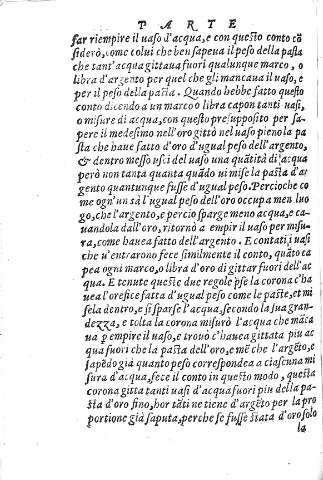 PARTE
far riempire il uaso d'acqua, e con questo conto cō
siderò, come colui che ben sapeua il peso della pasta
che tant'acqua gittaua fuori qualunque marco, o
libra d'argento per quel che gli mancaua il uaso, e
per il peso della pasta. Quando hebbe fatto questo
conto dicendo a un marco o libra capon tanti uasi,
o misure di acqua, con questo presupposito per sa-
pere il medesimo nell'oro gittò nel uaso pieno la pa
sta che haue fatto d'oro d'ugual peso dell'argento,
& dentro messo uscì del uaso una quātità di acqua
però non tanta quanta quādo ui mise la pasta d'ar
gento quantunque fusse d'ugual peso. Percioche co
me ogn'un sà l'ugual peso dell'oro occupa men luo
go, che l'argento, e percio sparge meno acqua, e ca-
uandola dall'oro, ritornò a empir il uaso per misu-
ra, come hauea fatto dell'argento. E contati i uasi
che u'entrarono fece similmente il conto, quāto ca
pea ogni marco, o libra d'oro di gittar fuori dell'ac
qua. E tenute queste due regole pse la corona c'ha
uea l'orefice fatta d'ugual peso come le paste, et mi
sela dentro, e si sparse l'acqua, secondo la sua gran-
dezza, e tolta la corona misurò l'acqua che mā̄ca
ua p empire il uaso, e trouò c'hauea gittata piu ac
qua fuori che la pasta dell'oro, e mē che l'argēto, e
sapēdo già quanto peso correspondea a ciascuna mi
sura d'acqua, fece il conto in questo modo, questa
corona gitta tanti uasi d'acqua fuori piu della pa-
sta d'oro fino, hor tāti ne tiene d'argēto per la pro
portione già saputa, perche se fusse stata d'oro solo
la